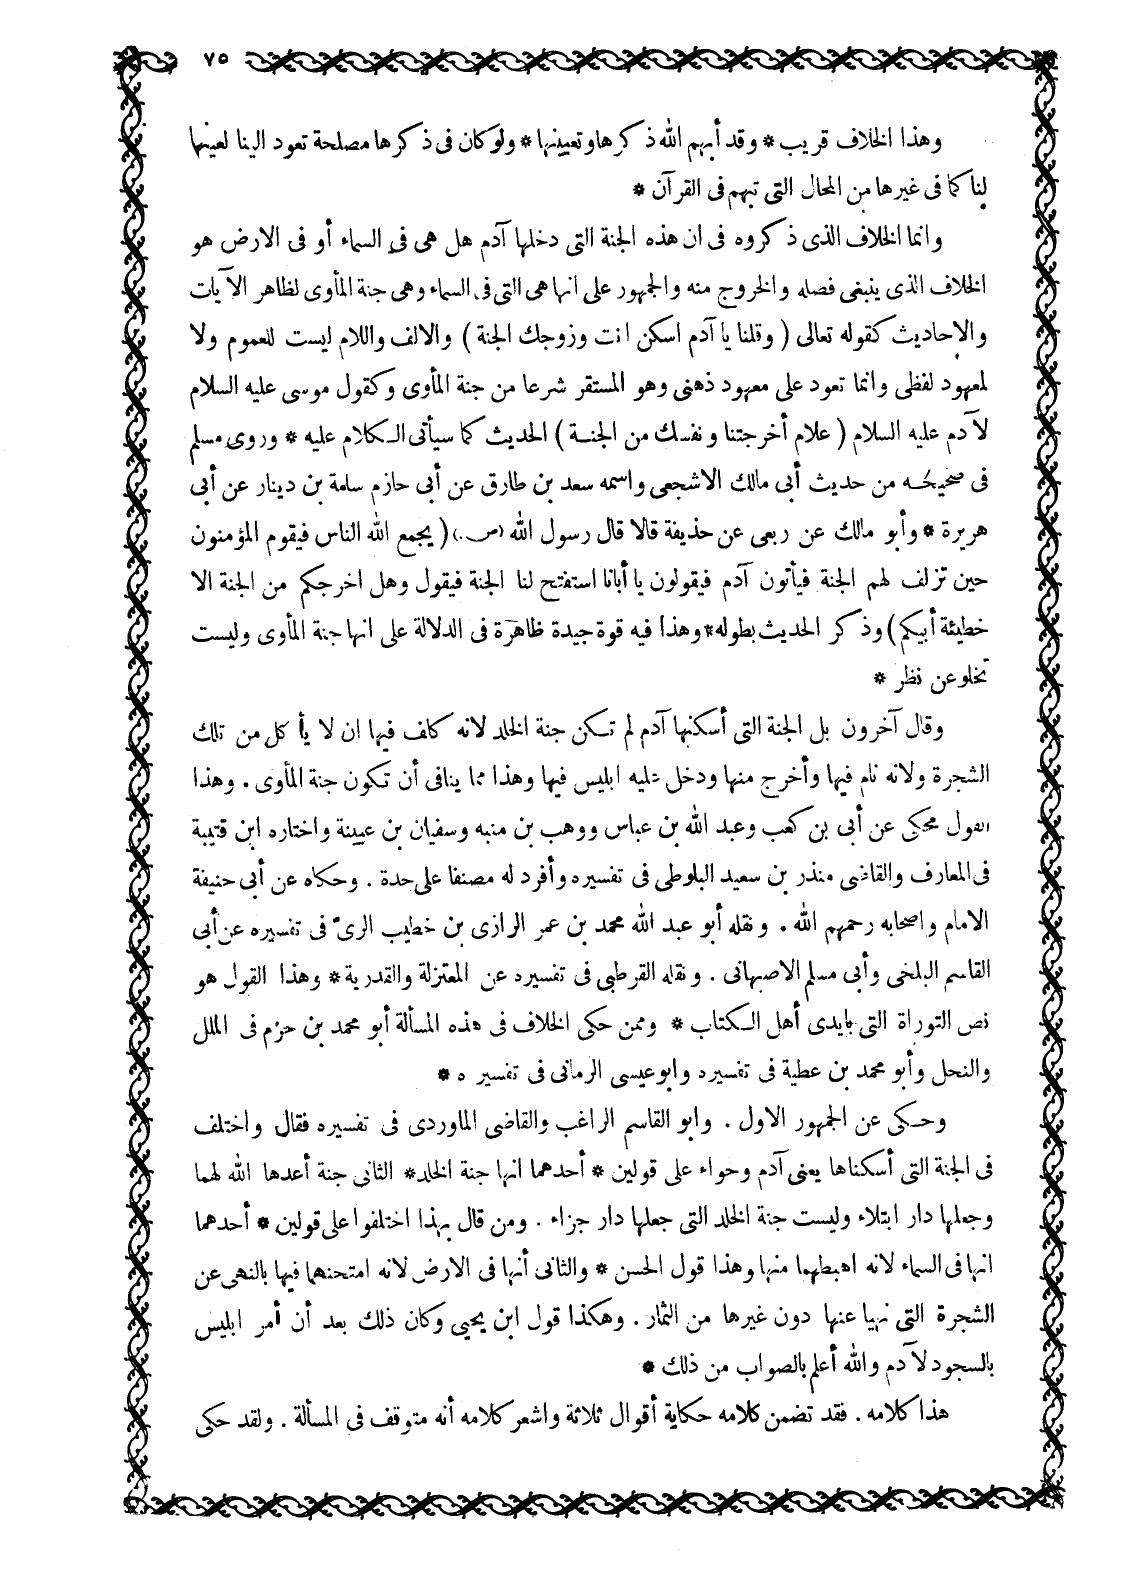 ٧٥
وهذا الخلاف قريب * وقد أبهم الله ذكرها وتعيينها * ولو كان فى ذكرها مصلحة تعود الينا لعينها
لنا كما فى غيرها من المحال التى تبهم فى القرآن *
وانما الخلاف الذى ذكروه فى ان هذه الجنة التى دخلها آدم هل هى فى السماء أو فى الارض هو
الخلاف الذى ينبغى فصله والخروج منه والجمهور على انها هى التى فى السماء وهى جنة المأوى لظاهر الآيات
والاحاديث كقوله تعالى ( وقلنا يا آدم اسكن انت وزوجك الجنة ) والالف واللام ليست للعموم ولا
لمعهود لفظى وانما تعود على معهود ذهنى وهو المستقر شرعا من جنة المأوى وكقول موسى عليه السلام
لآدم عليه السلام ( علام أخرجتنا ونفسك من الجنة ) الحديث كما سيأتى الكلام عليه * وروى مسلم
فى صحيحه من حديث أبى مالك الاشجعى واسمه سعد بن طارق عن أبى حازم سلمة بن دينار عن أبى
هريرة * وأبو مالك عن ربعى عن حذيفة قالا قال رسول الله (ص.) ( يجمع الله الناس فيقوم المؤمنون
حين تزلف لهم الجنة فيأتون آدم فيقولون يا أبانا استفتح لنا الجنة فيقول وهل اخرجكم من الجنة الا
خطيئة أبيكم ) وذكر الحديث بطوله * وهذا فيه قوة جيدة ظاهرة فى الدلالة على انها جنة المأوى وليست
تخلو عن نظر *
وقال آخرون بل الجنة التى أسكنها آدم لم تكن جنة الخلد لانه كلف فيها ان لا يأكل من تلك
الشجرة ولانه نام فيها وأخرج منها ودخل عليه ابليس فيها وهذا مما ينافى أن تكون جنة المأوى . وهذا
القول محكى عن أبى بن كعب وعبد الله بن عباس ووهب بن منبه وسفيان بن عيينة واختاره ابن قتيبة
فى المعارف والقاضى منذر بن سعيد البلوطى فى تفسيره وأفرد له مصنفا على حدة . وحكاه عن أبى حنيفة
الامام واصحابه رحمهم الله . ونقله أبو عبد الله محمد بن عمر الرازى بن خطيب الرىّ فى تفسيره عن أبى
القاسم البلخى وأبى مسلم الاصبهانى . ونقله القرطبى فى تفسيره عن المعتزلة والقدرية * وهذا القول هو
نص التوراة التى بايدى أهل الكتاب * وممن حكى الخلاف فى هذه المسألة أبو محمد بن حزم فى الملل
والنحل وأبو محمد بن عطية فى تفسيره وابو عيسى الرمانى فى تفسير ه *
وحكى عن الجمهور الاول . وابو القاسم الراغب والقاضى الماوردى فى تفسيره فقال واختلف
فى الجنة التى أسكناها يعنى آدم وحواء على قولين * أحدهما انها جنة الخلد * الثانى جنة أعدها الله لهما
وجعلها دار ابتلاء وليست جنة الخلد التى جعلها دار جزاء . ومن قال بهذا اختلفوا على قولين * أحدهما
انها فى السماء لانه اهبطهما منها وهذا قول الحسن * والثانى أنها فى الارض لانه امتحنهما فيها بالنهى عن
الشجرة التى نهيا عنها دون غيرها من الثمار . وهكذا قول ابن يحيى وكان ذلك بعد أن أمر ابليس
بالسجود لآدم والله أعلم بالصواب من ذلك *
هذا كلامه . فقد تضمن كلامه حكاية أقوال ثلاثة واشعر كلامه أنه متوقف فى المسألة . ولقد حكى